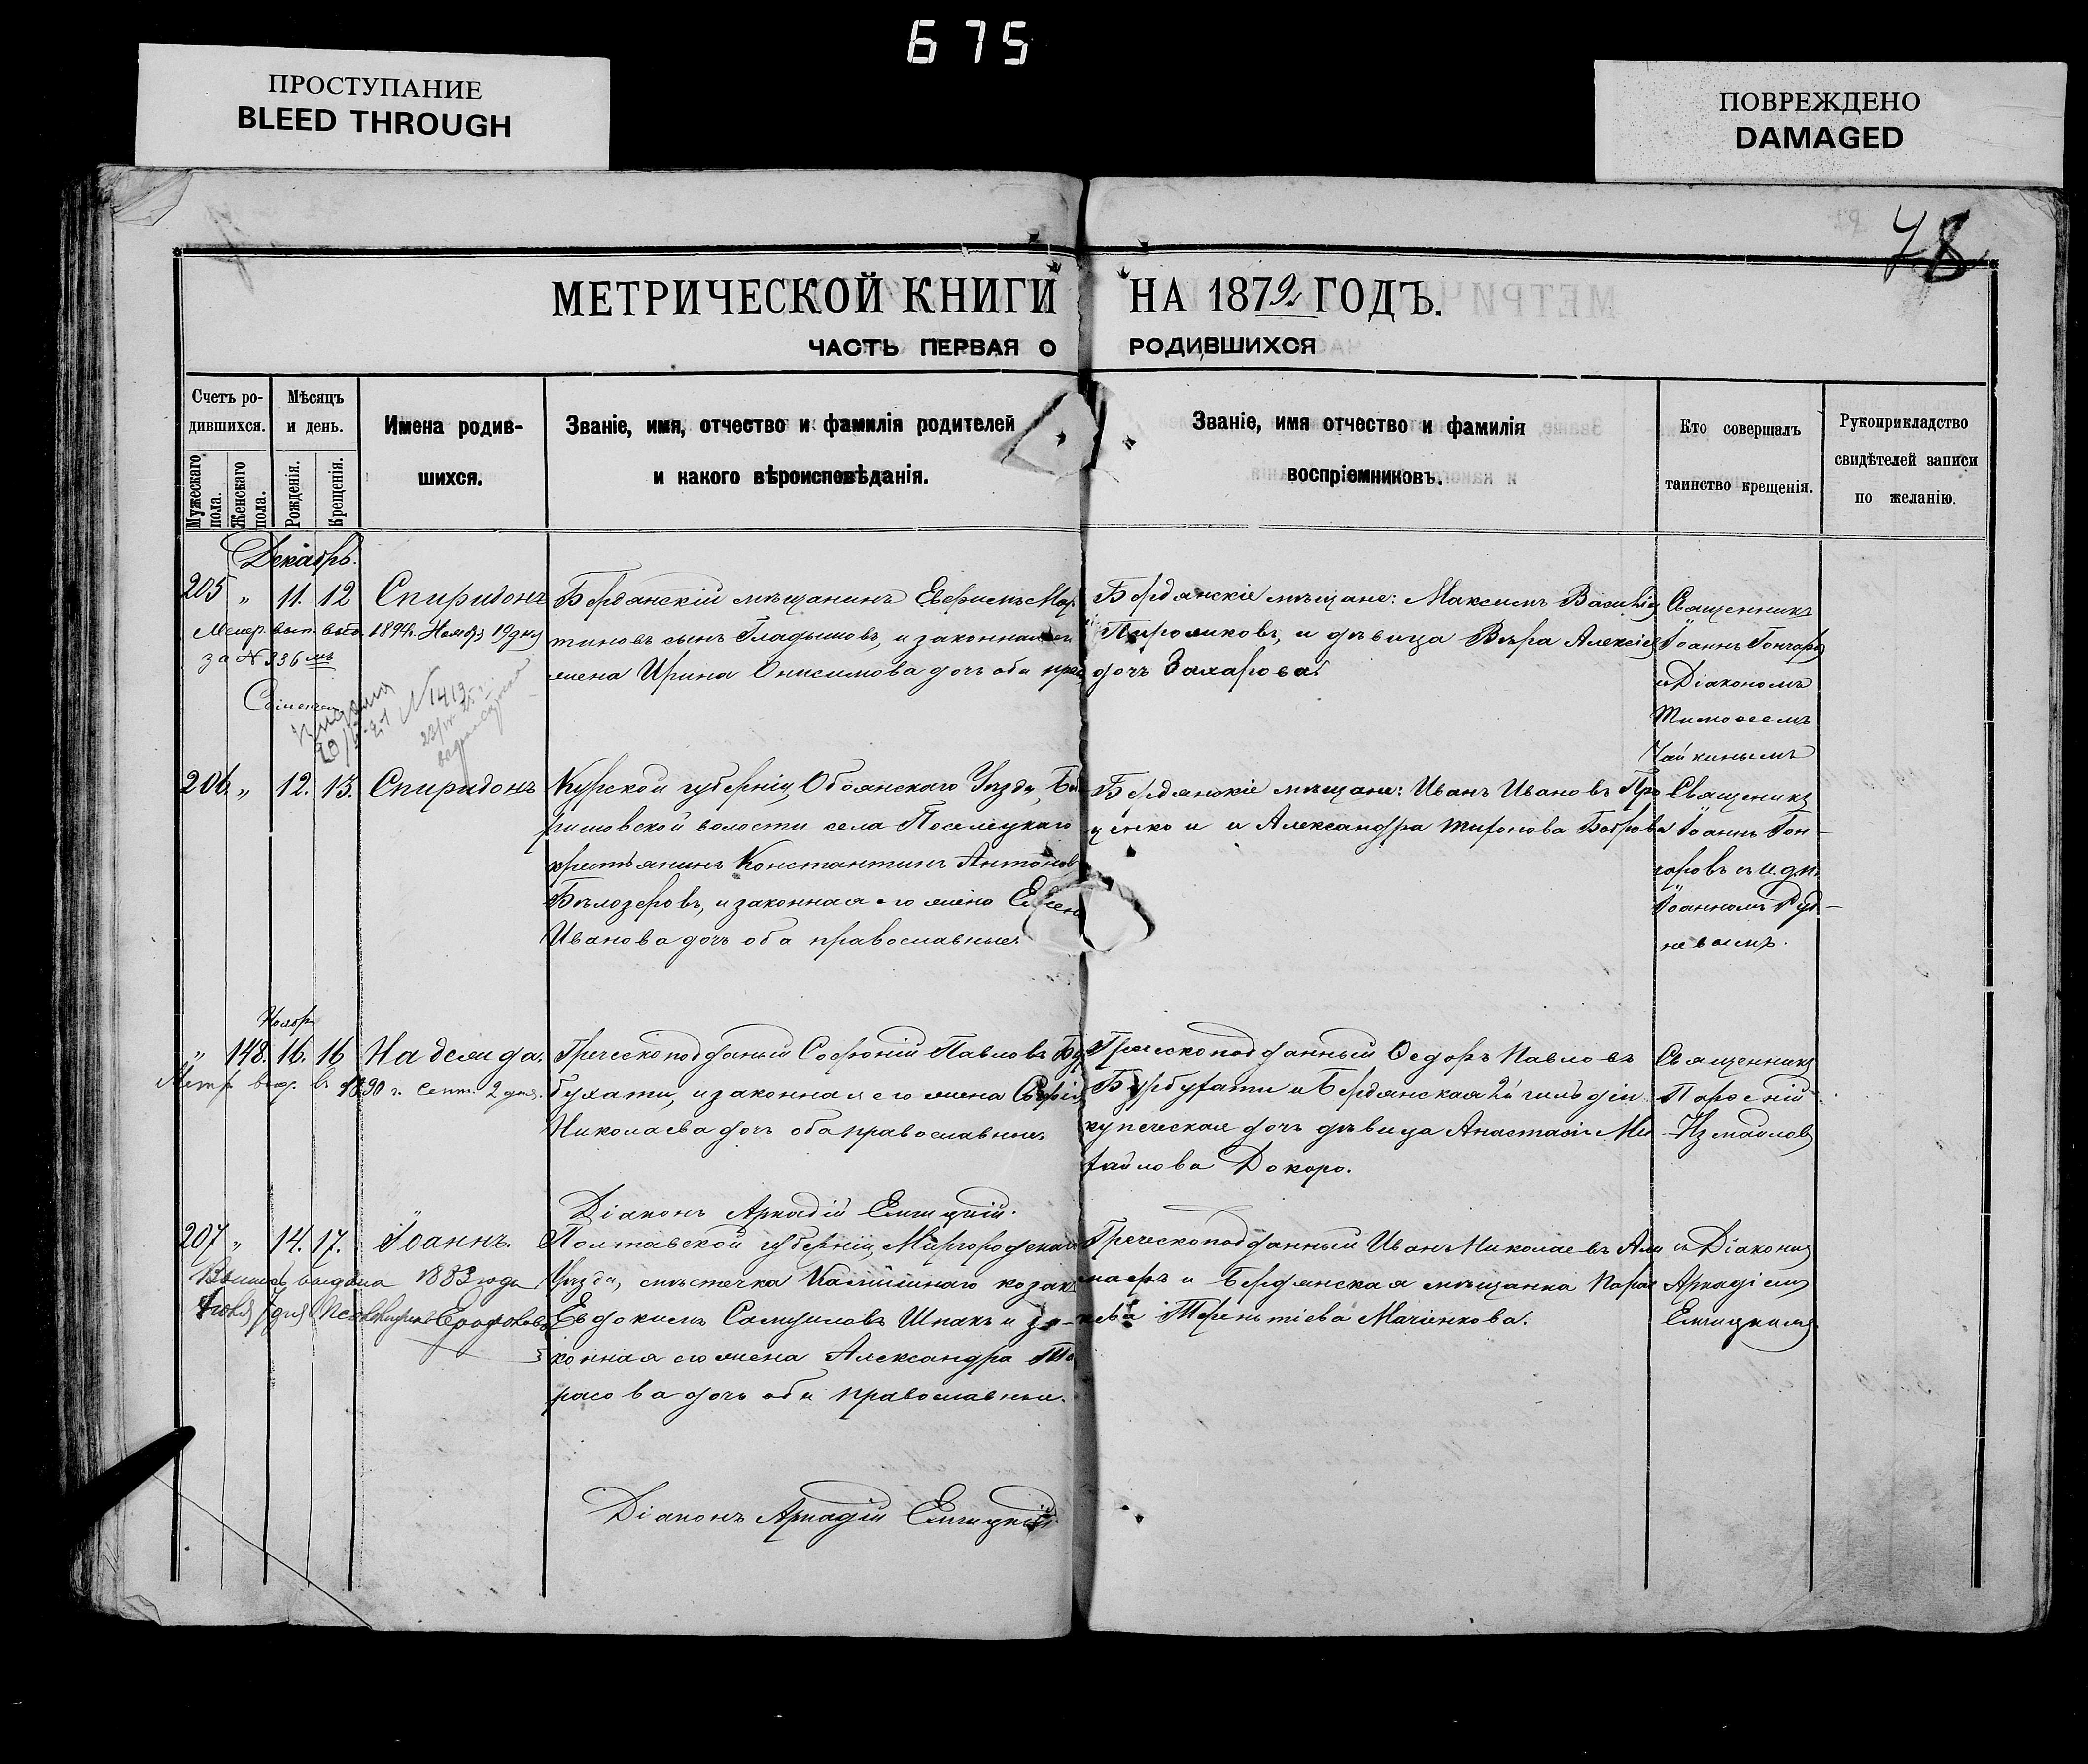 675
ПРОСТУПАНИЕ
BLEED THROUGH
ПОВРЕЖДЕНО
DAMAGED
78
МЕТРИЧЕСКОЙ КНИГИ НА 1879 ГОДЪ.
ЧАСТЬ ПЕРВАЯ О РОДИВШИХСЯ
Счетъ ро-
дившихся.
Мужескаго пола.
Женскаго пола.
Мѣсяцъ
и день.
Рожденія.
Крещенія.
Имена родив-
шихся.
Званіе, имя, отчество и фамилія родителей
и какого вѣроисповѣданія.
Званіе, имя отчество и фамилія
воспріемниковъ.
Кто совершалъ
таинство крещенія.
Рукоприкладство
свидѣтелей записи
по желанію.
Декабрь.
205 " 11. 12 Спиридонъ
1894 г. Ноябр 19 дня
за № 336
№ 1413
Бердянскій мѣщанинъ Евфимъ Мар
тиновъ сынъ Гладышовъ, и законная его
жена Ирина Онисимова дочь оба прав
Бердянскіе мѣщане: Максимъ Василіев
Пироженковъ, и дѣвица Вѣра Алексіев
дочь Захарова.
Священникъ
Іоаннъ Гончаров
с Діакономъ
Тимофеемъ
Чайкинымъ
206. " 12. 13. Спиридонъ
Курской губерніи, Обоянскаго Уѣзда,
ришовской волости села Поселецкаго
крестьянинъ Константинъ Антонов
Бѣлозеровъ, и законная его жена Елена
Иванова дочь оба православные.
Бердянскіе мѣщане: Иванъ Ивановъ Про
ценко и и Александра Миронова Боброва
Священникъ
Іоаннъ Гон-
чаровъ съ и.д.п.
Іоанномъ Руд-
невымъ.
Ноябр
" 148. 16. 16 Надежда.
Метр. выд. в 1890 г. Сент. 2 дня.
Греческоподданый Софроній Павловъ Бур
бухати, и законная его жена Софія
Николаева дочь оба православные
Греческоподданный Ѳедоръ Павловъ
Бурбухати и Бердянская 2й гильдіи
купеческая дочь дѣвица Анастасія Ми
хайлова Докоро.
Священникъ
Парѳеній
Измайлов
Діаконъ Аркадій Епицкій.
207 " 14. 17. Іоаннъ.
выдана 1883 года
Полтавской губерніи, Миргородскаго
Уѣзда, мѣстечка Камышнаго козак
Евдокимъ Самуиловъ Шпакъ и за-
конная его жена Александра Та
расова дочь оба православные.
Греческоподданный Иванъ Николаевъ Али
маеръ и Бердянская мѣщанка Парас
кева Терентіева Маченкова.
съ Діакономъ
Аркадіемъ
Епицкимъ.
Діаконъ Аркадій Епицкій